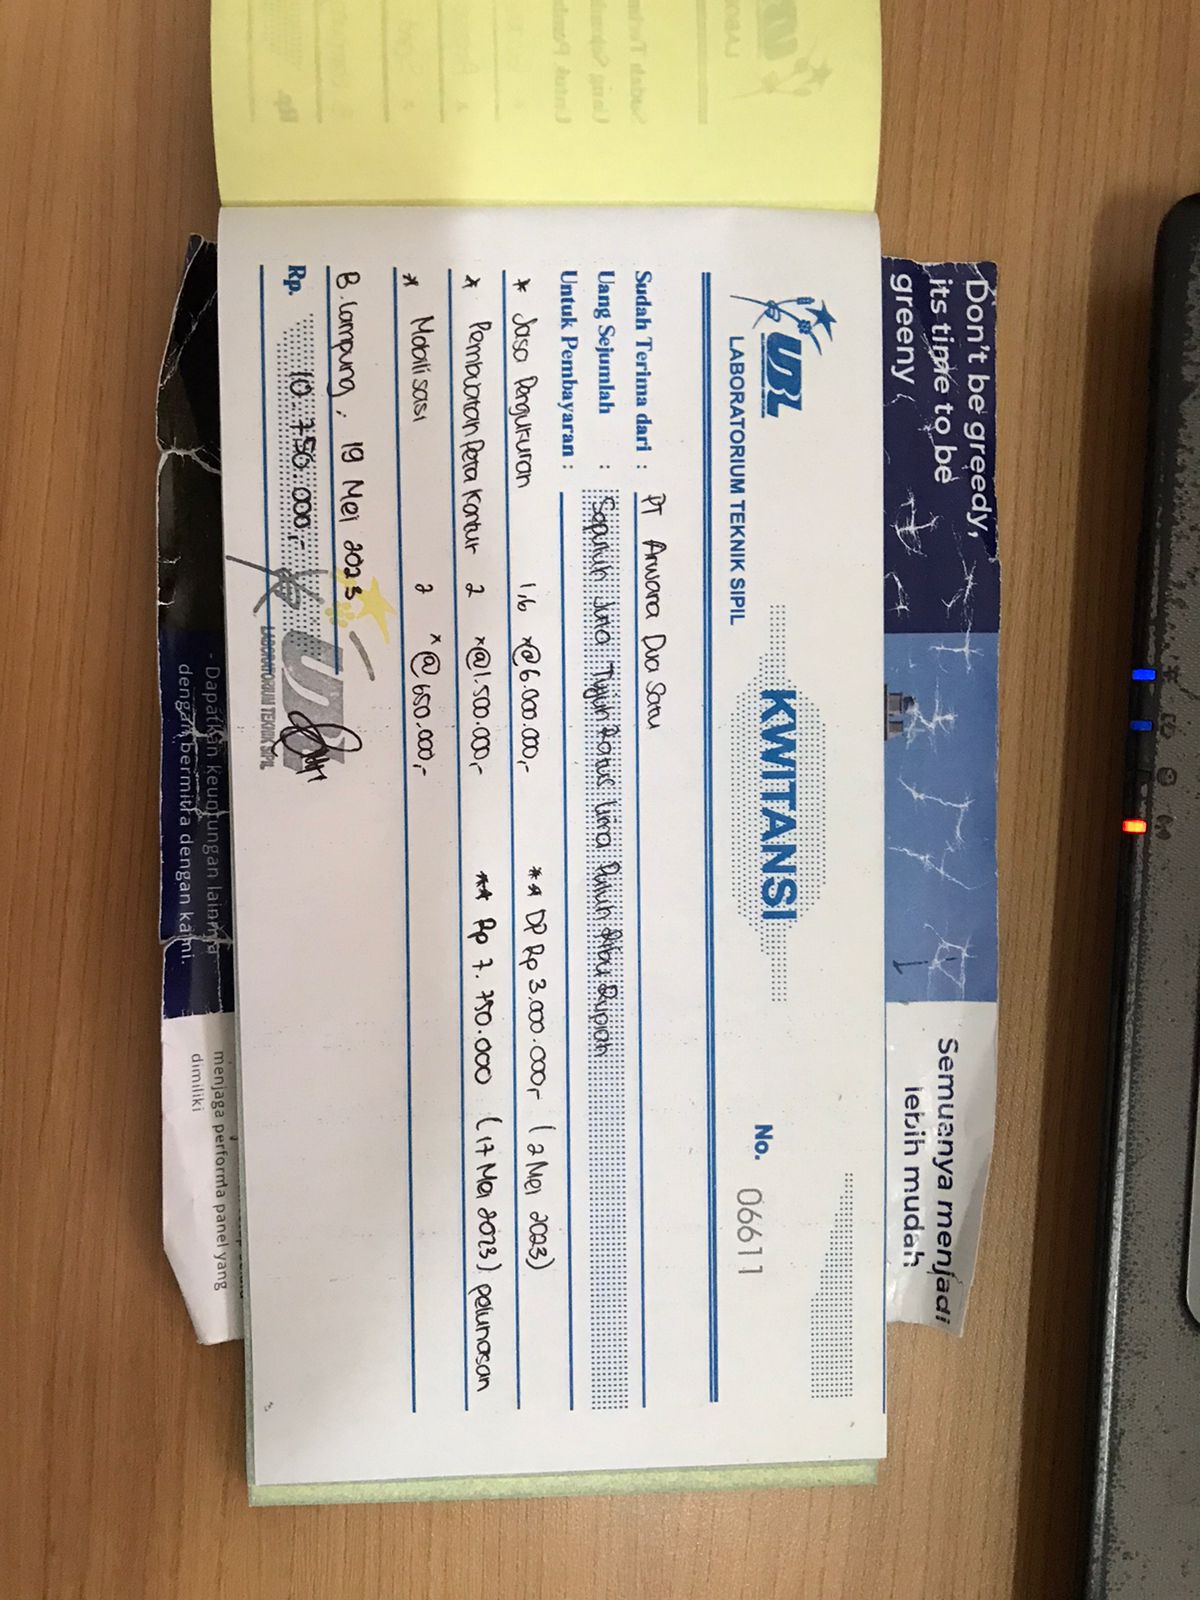 Don't be greedy,
its time to be
greeny
Semuanya menjadi
lebih mudah
UBL
LABORATORIUM TEKNIK SIPIL
KWITANSI
No. 06611
Sudah Terima dari : PT Arwara Dua Satu
Uang Sejumlah : Sepuluh Juta Tujuh Ratus Lima Puluh Ribu Rupiah
Untuk Pembayaran :
* Jasa Pengukuran 1,6 x @6.000.000,- ** DP Rp 3.000.000,- (2 Mei 2023)
* Pembuatan Peta Kontur 2 x @1.500.000,- ** Rp 7.750.000 (17 Mei 2023) pelunasan
* Mobilisasi 2 x @650.000,-
B. Lampung, 19 Mei 2023
Rp. 10.750.000,-
UBL
LABORATORIUM TEKNIK SIPIL
- Dapatkan keuntungan lainnya
dengan bermitra dengan kami.
menjaga performa panel yang
dimiliki